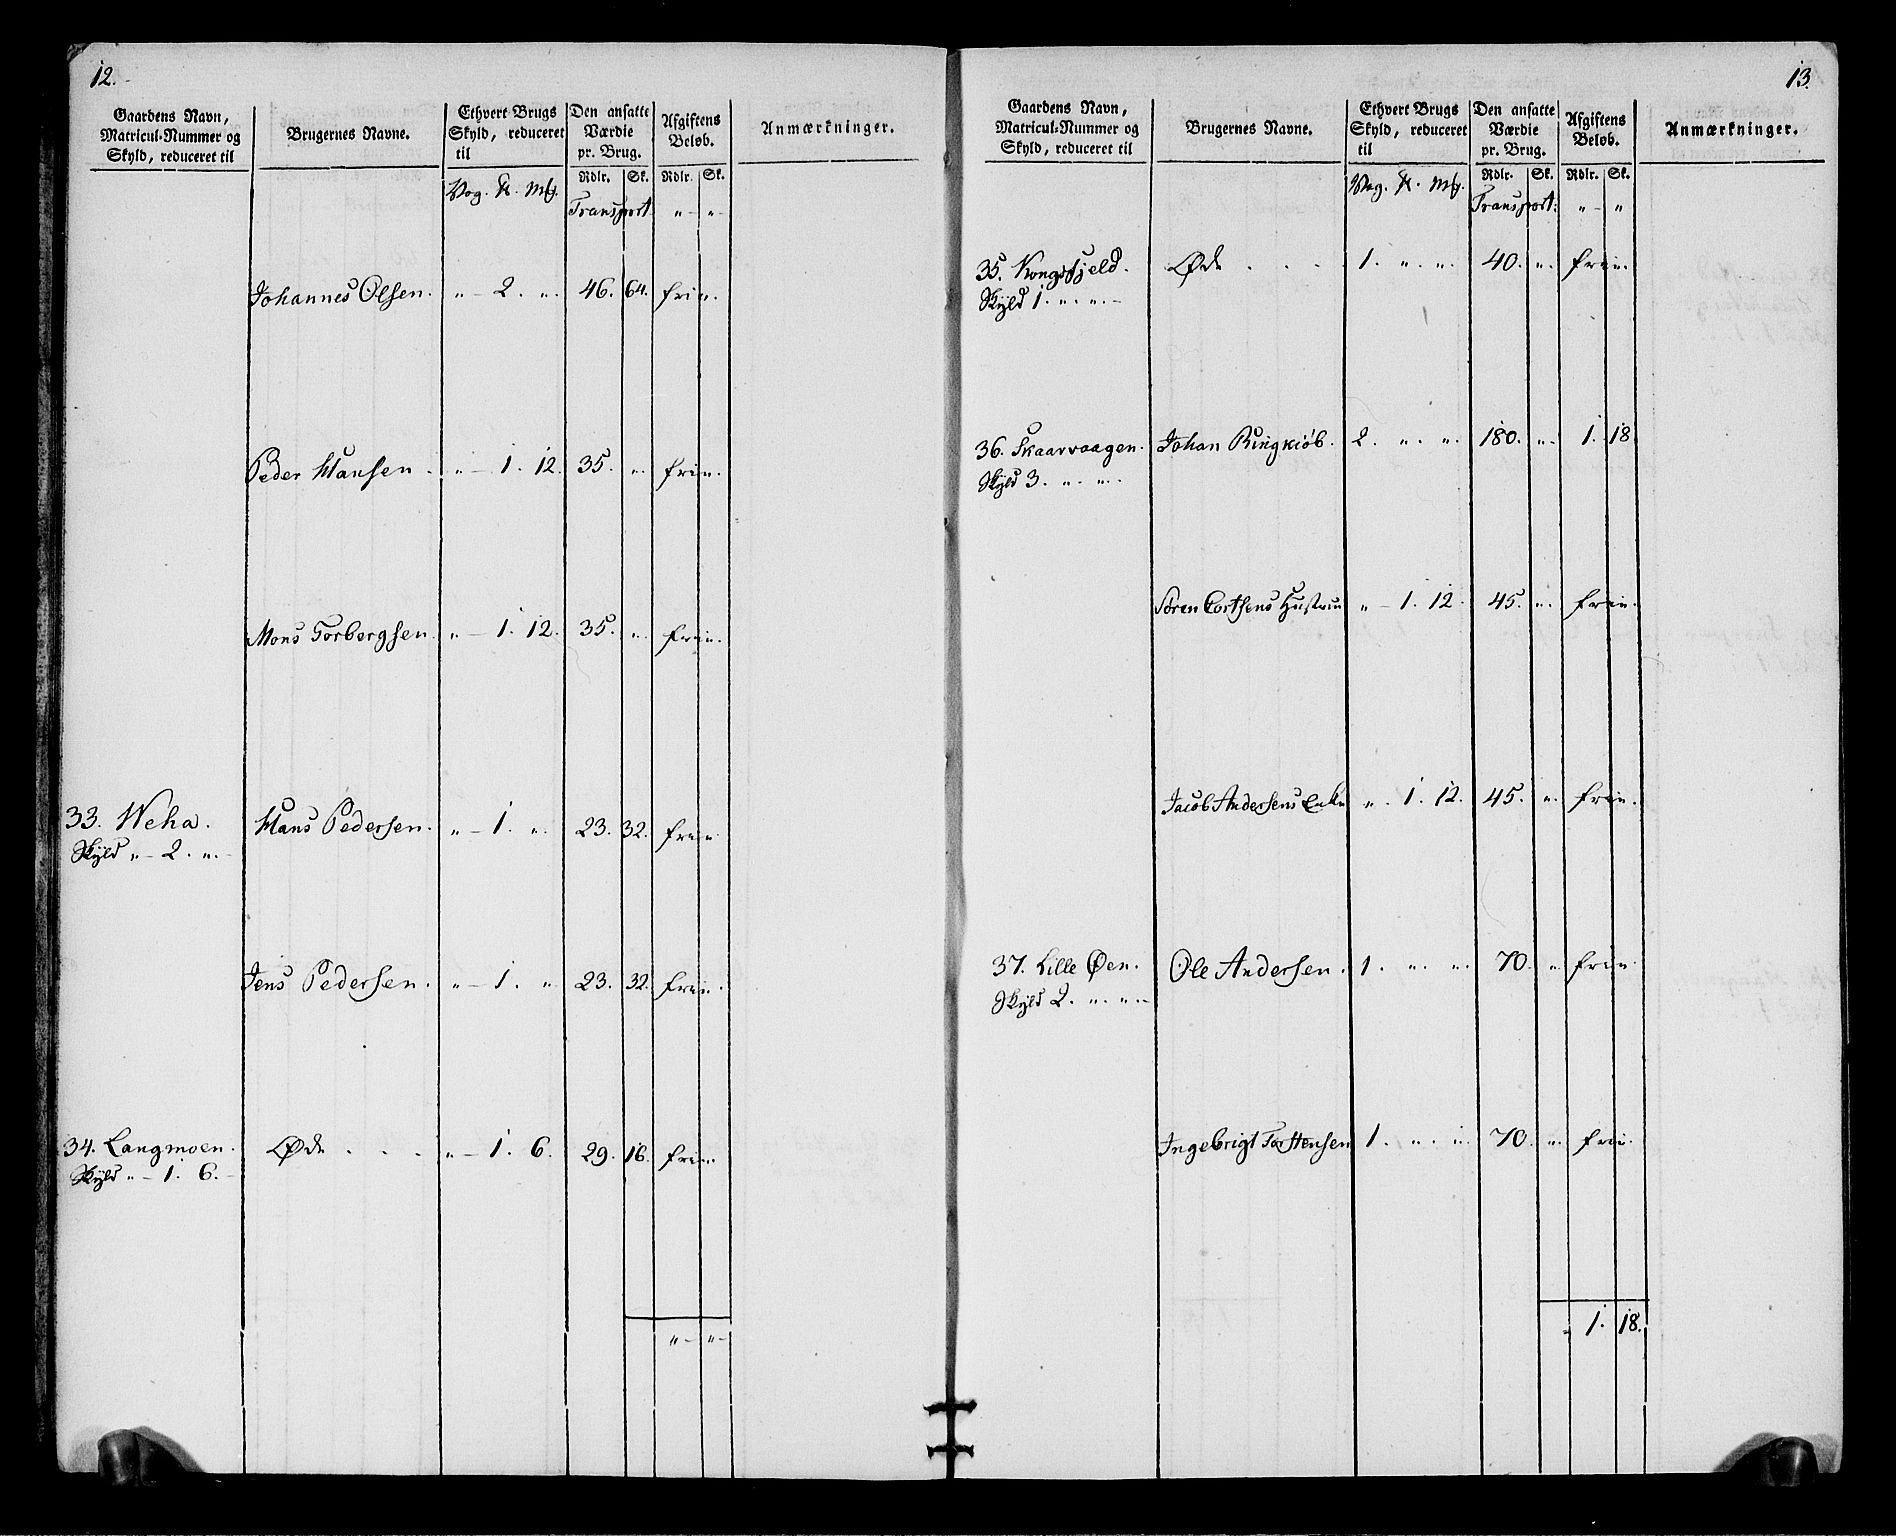 12.
Gaardens Navn, Matricul-Nummer og Skyld, reduceret til | Brugernes Navne. | Ethvert Brugs Skyld, reduceret til | Den ansatte Værdie pr. Brug. | Afgiftens Beløb. | Anmærkninger.
Vog. Rdlr. Sk. Rdlr. Sk.
Transport. „ - „ -
Johannes Olsen. „ - 2. „. 46. 64. frie.
Peder Hansen. „ - 1. 12. 35. „. frie.
Mons Torbergsen. „ - 1. 12. 35. „. frie.
33. Weha. Hans Pedersen. „ - 1. „. 23. 32. frie
Skyld „ - 2. „. -
Jens Pedersen. „ - 1. „ 23. 32. frie.
34. Langmoen. Øde . . . „ - 1. 6. 29. 16. frie.
Skyld „ - 1. 6. -
„ - „ -
13.
Gaardens Navn, Matricul-Nummer og Skyld, reduceret til | Brugernes Navne. | Ethvert Brugs Skyld, reduceret til | Den ansatte Værdie pr. Brug. | Afgiftens Beløb. | Anmærkninger.
Vog. Rdlr. Sk. Rdlr. Sk.
Transport: „ - „
35. Kongsfjeld. Øde . . . 1. „. „. 40. „. frie.
Skyld 1. „. „. -
36. Skaarvaagen. Johan Ringkiöb. 2. „. „. 180. „. 1. 18
Skyld 3. „. „.
Sören Cortsens Hustrue „ - 1. 12. 45. „. frie.
Jacob Andersens Enke „. 1. 12. 45. „. frie.
37. Lille Øen. Ole Andersen. 1. „. „. 70. „ frie.
Skyld 2. „. „. -
Ingebrigt Torstensen 1. „. „. 70. „. frie.
1. 18.